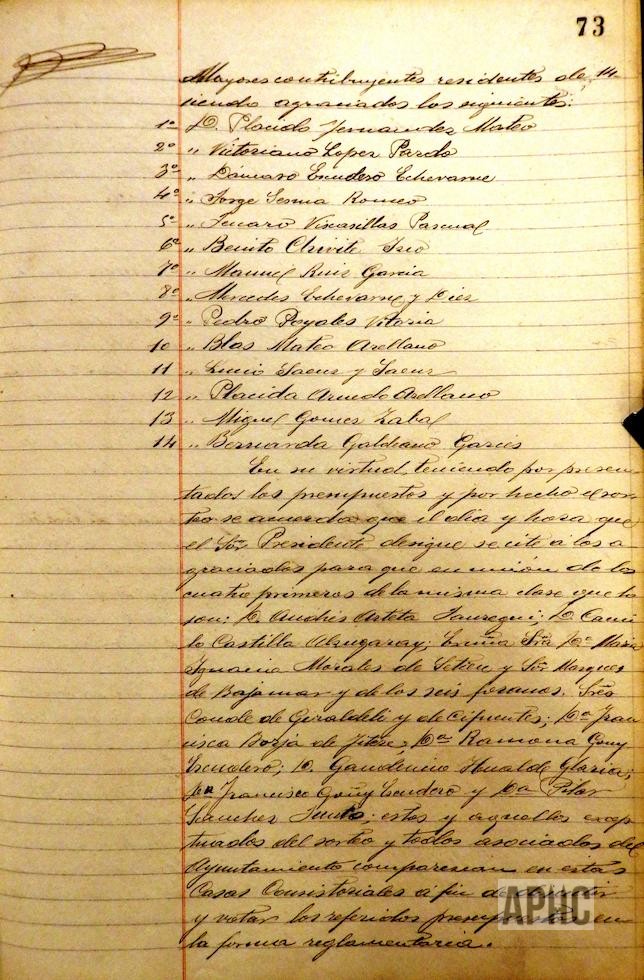 73
Mayores contribuyentes residentes de, 14
siendo agraciados los siguientes:
1º D. Placido Fernandez Mateo
2º " Victoriano Lopez Pardo
3º " Damaso Escudero Echevarne
4º " Jorge Sesma Romeo
5º " Genaro Viscasillas Pascual
6º " Benito Chivite
7º " Manuel Ruiz Garcia
8º " Mercedes Echevarne y Diez
9º " Pedro Poyales Vitoria
10 " Blas Mateo Arellano
11 " Lucio Saenz y Saenz
12 " Placida Arnedo Arellano
13 " Miguel Gomez Zabal
14 " Bernarda Galdeano Garces
En su virtud, teniendo por presen-
tados los presupuestos y por hecho el sor-
teo se acuerda que el dia y hora que
el Sor. Presidente designe se cite á los a-
graciados para que en unión de los
cuatro primeros de la misma clase que lo
son: D. Andrés Arteta Jauregui; D. Cami-
lo Castilla Abrugaray; Exma Sra Dª Maria
Ignacia Morales de Setien y Sor. Marques
de Bajamar y de los seis foranos. Sres
Conde de Giraldeli y de Cifuentes; Dª Fran
cisca Borja de Fitero; Dª Ramona Goñy
Escudero; D. Gaudencio Hualde Gloria;
Francisco Goñy Escudero y Dª Pilar
Sanchez; estos y aquellos excep-
tuados del sorteo y todos asociados del
Ayuntamiento comparezcan en estas
Casas Consistoriales á fin de discutir
y votar los referidos presupuestos en
la forma reglamentaria.
APHC